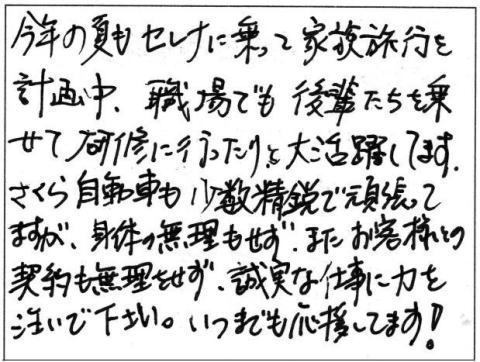 今年の夏も セレナに乗って家族旅行を
計画中、職場でも 後輩たちを乗
せて研修に行ったりと大活躍してます.
さくら自動車も少数精鋭で頑張って
ますが、身体の無理もせず、また お客様との
契約も無理をせず、誠実な仕事に力を
注いで下さい。いつまでも応援してます!